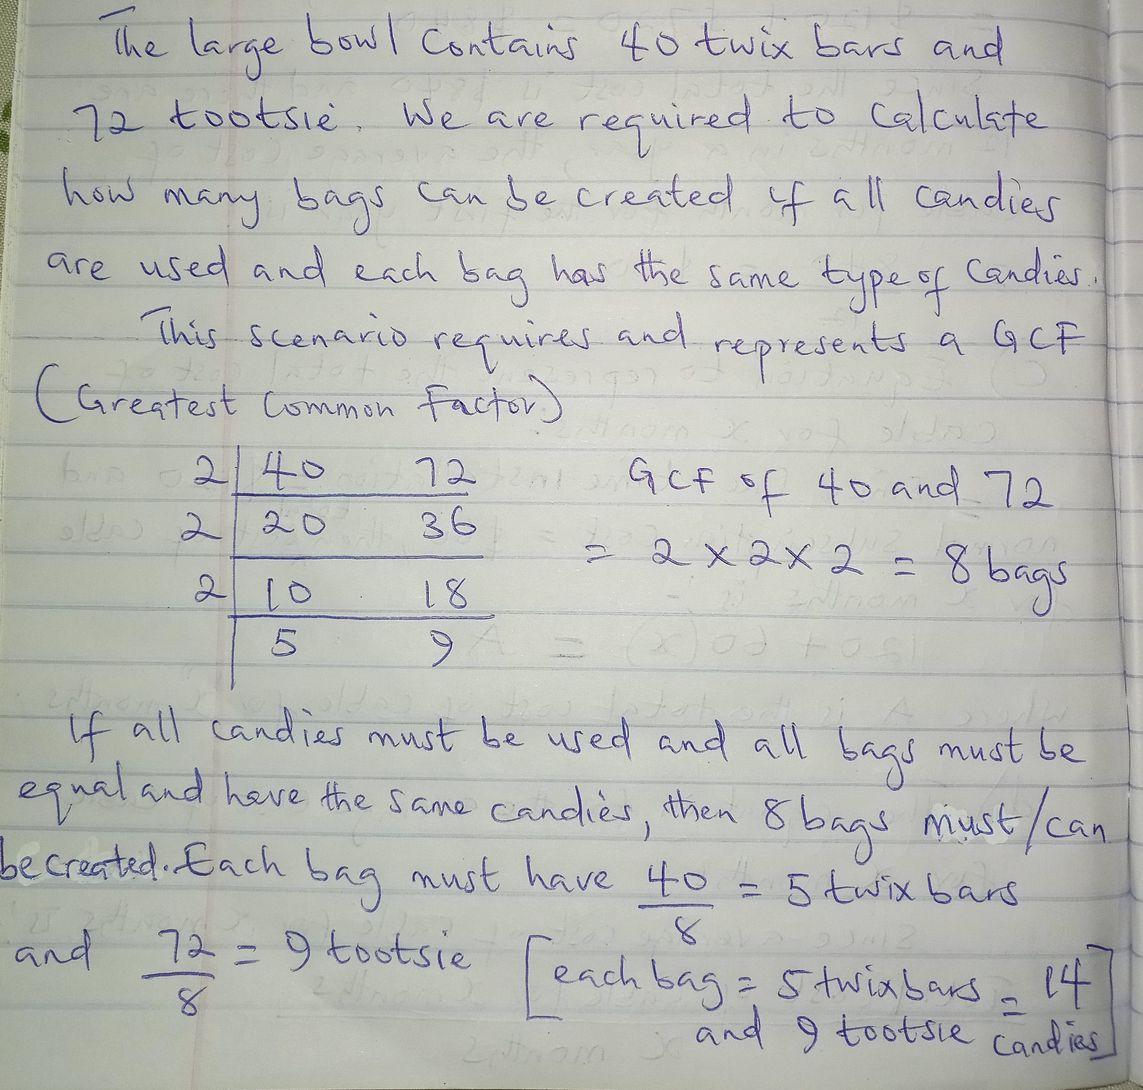 The large bowl contains 40 twix bars and
72 tootsie. We are required to calculate
how many bags can be created if all candies
are used and each bag has the same type of candies.
This scenario requires and represents a GCF
(Greatest Common Factor)
2 | 40 72 = GCF of 40 and 72
2 | 20 36 = 2 × 2 × 2 = 8 bags
2 | 10 18
5 9
If all candies must be used and all bags must be
equal and have the same candies, then 8 bags must/can
be created. Each bag must have 40/8 = 5 twix bars
and 72/8 = 9 tootsie [each bag = 5 twix bars = 14
and 9 tootsie candies]